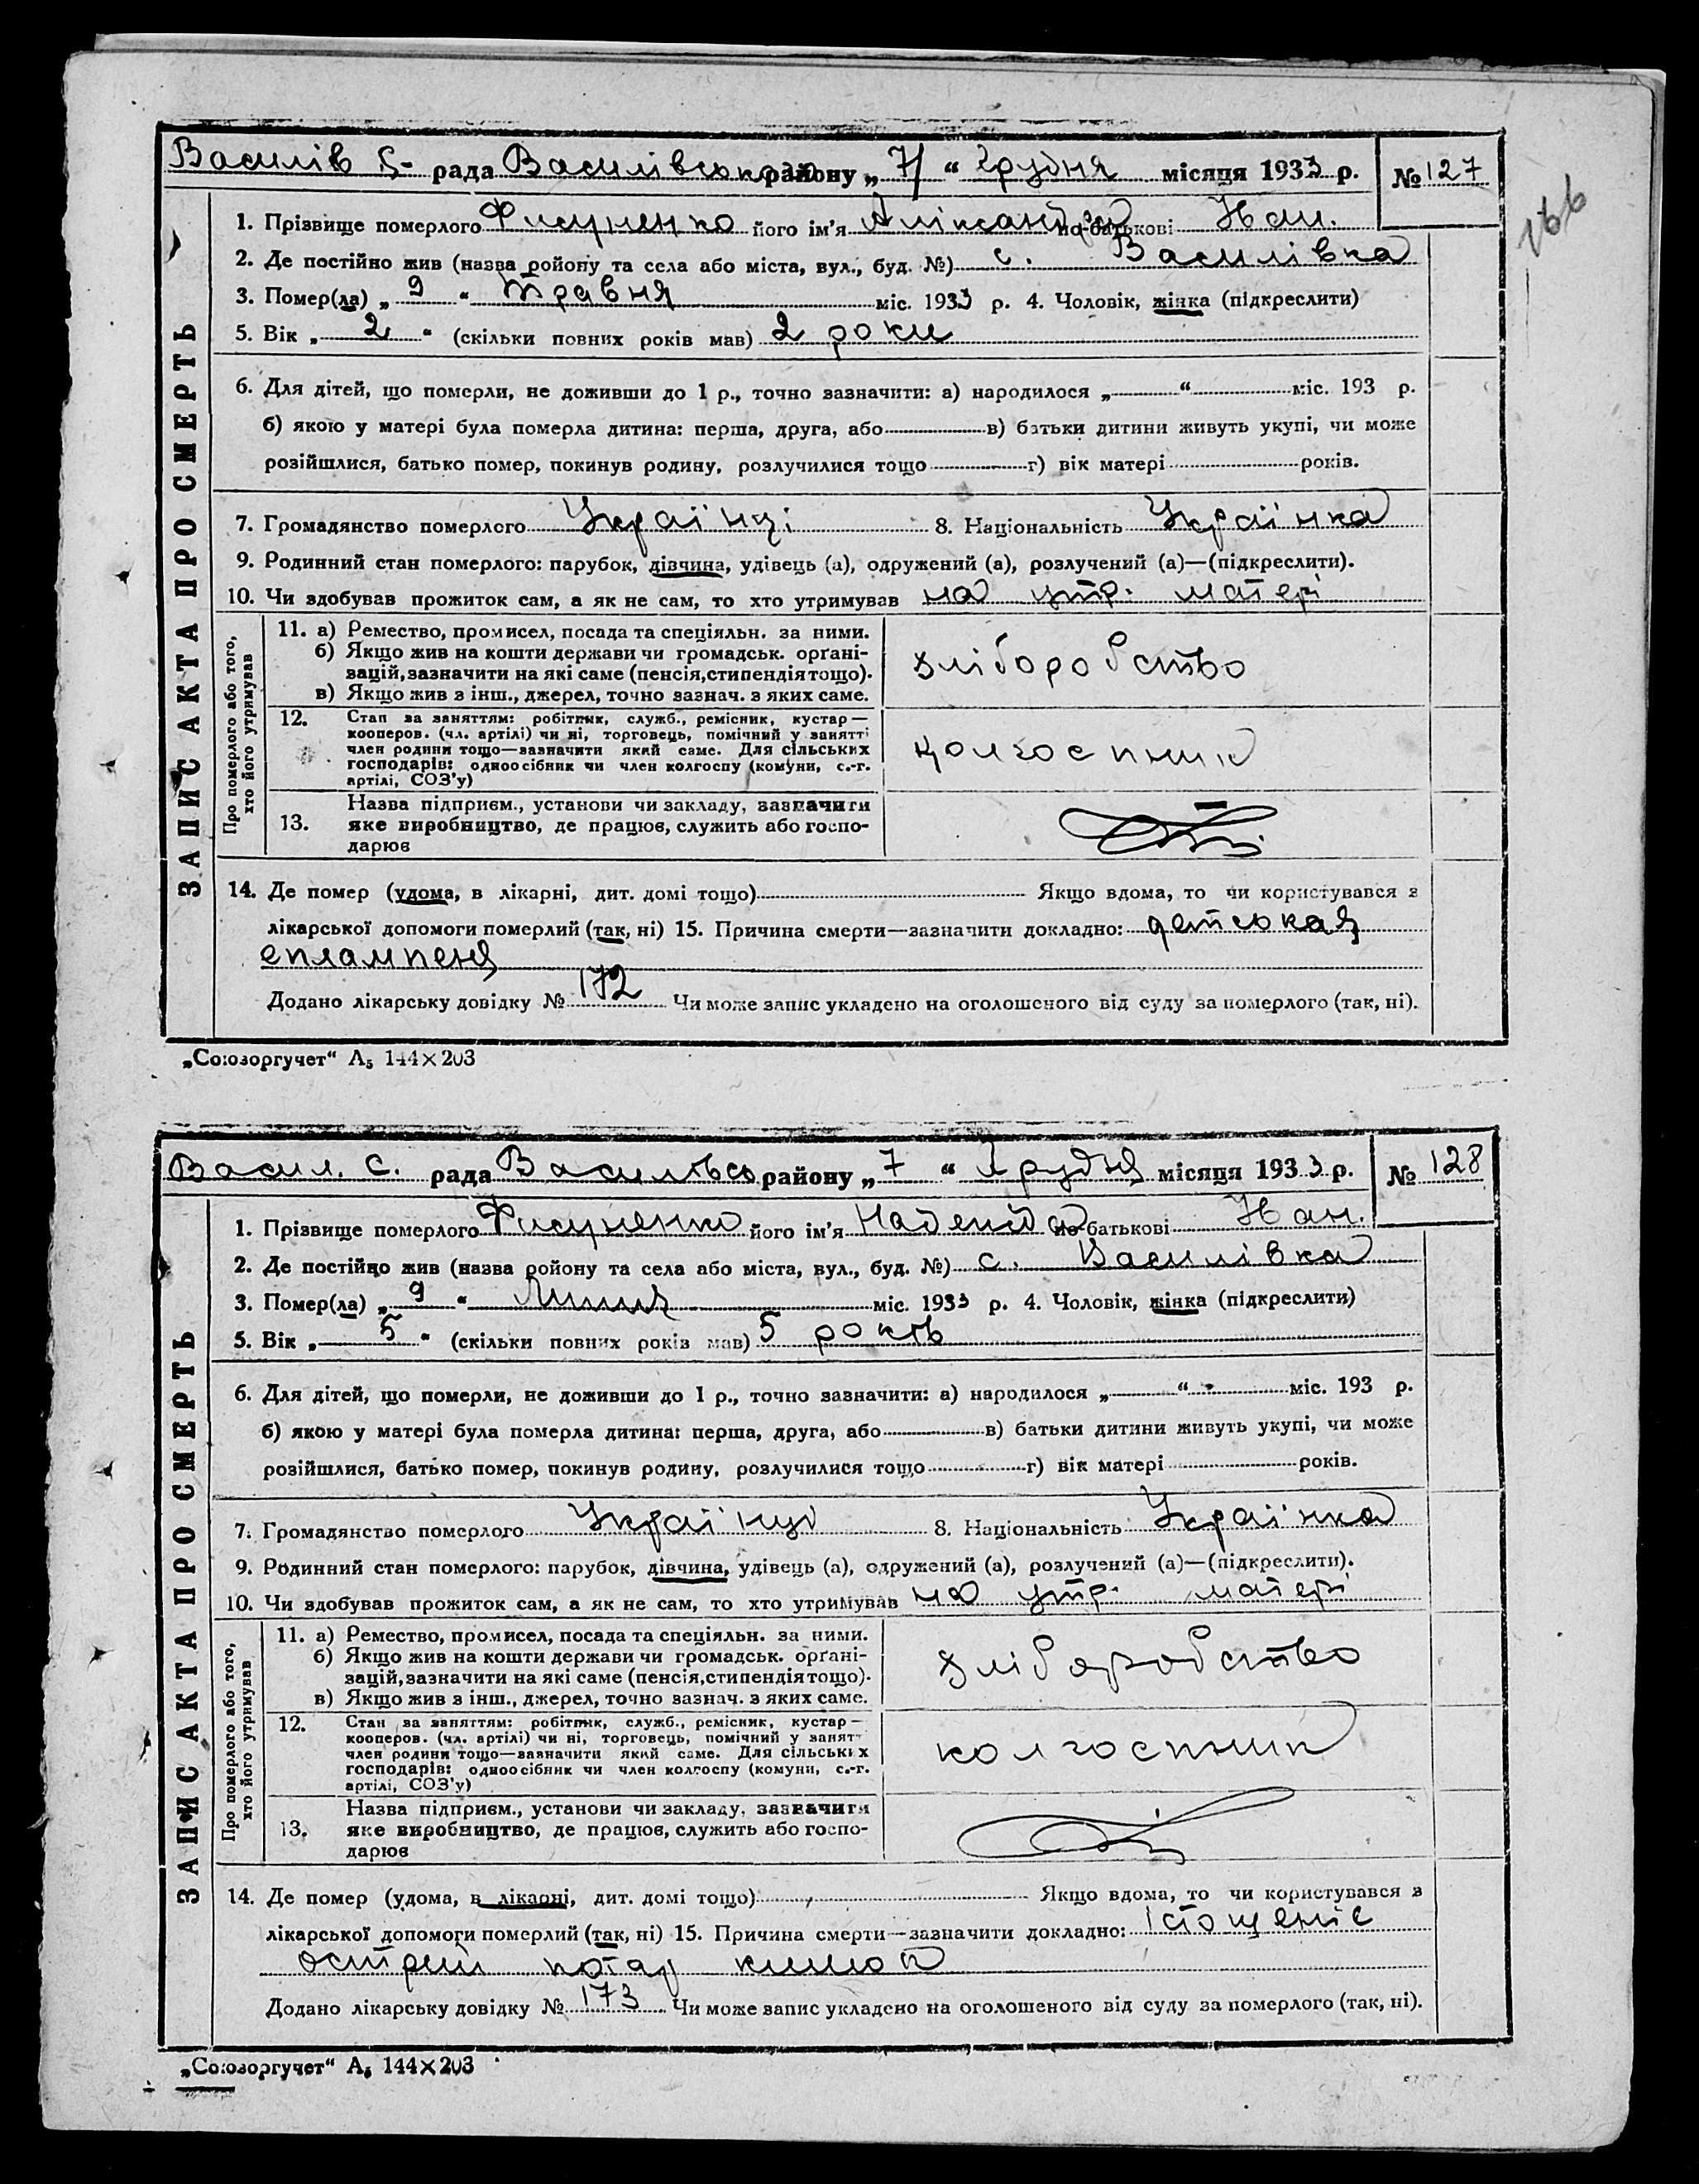 Василів с- рада Василівського району „ 7 " Грудня місяця 1933 р. № 127
166
1. Прізвище померлого Фисуненко його ім'я Аліксандра по-батькові Іван.
2. Де постійно жив (назва ройону та села або міста, вул., буд. №) с. Василівка
3. Помер(ла) „ 9 " травня міс. 1933 р. 4. Чоловік, жінка (підкреслити)
5. Вік „ 2 " (скільки повних років мав) 2 роки
6. Для дітей, що померли, не доживши до 1 р., точно зазначити: а) народилося „ " міс. 193 р.
б) якою у матері була померла дитина: перша, друга, або в) батьки дитини живуть укупі, чи може
розійшлися, батько помер, покинув родину, розлучилися тощо г) вік матері років.
7. Громадянство померлого Україці 8. Національність Українка
9. Родинний стан померлого: парубок, дівчина, удівець (а), одружений (а), розлучений (а)—(підкреслити).
10. Чи здобував прожиток сам, а як не сам, то хто утримував на утр. матері
ЗАПИС АКТА ПРО СМЕРТЬ
Про померлого або того, хто його утримував
11. а) Ремество, промисел, посада та спеціяльн. за ними.
б) Якщо жив на кошти держави чи громадськ. орґані-
зацій, зазначити на які саме (пенсія, стипендія тощо).
в) Якщо жив з інш., джерел, точно зазнач. з яких саме.
хліборобство
12. Стан за заняттям: робітник, служб., ремісник, кустар—
кооперов. (чл. артілі) чи ні, торговець, помічний у занятті
член родини тощо—зазначити який саме. Для сільських
господарів: одноосібник чи член колгоспу (комуни, с.-г.
артілі, СОЗ'у)
колгоспник
13. Назва підприєм., установи чи закладу, зазначити
яке виробництво, де працює, служить або госпо-
дарює
14. Де помер (удома, в лікарні, дит. домі тощо) Якщо вдома, то чи користувався з
лікарської допомоги померлий (так, ні) 15. Причина смерти—зазначити докладно: детськая
еплампсия
Додано лікарську довідку № 172 Чи може запис укладено на оголошеного від суду за померлого (так, ні).
„Союзоргучет" А₅ 144×203
Васил. с. рада Василівсь району „ 7 " Грудня місяця 1933 р. № 128
1. Прізвище померлого Фисуненко його ім'я Надежда по-батькові Іван.
2. Де постійно жив (назва ройону та села або міста, вул., буд. №) с. Василівка
3. Помер(ла) „ 9 " Липня міс. 1933 р. 4. Чоловік, жінка (підкреслити)
5. Вік „ 5 " (скільки повних років мав) 5 років
6. Для дітей, що померли, не доживши до 1 р., точно зазначити: а) народилося „ " міс. 193 р.
б) якою у матері була померла дитина: перша, друга, або в) батьки дитини живуть укупі, чи може
розійшлися, батько помер, покинув родину, розлучилися тощо г) вік матері років.
7. Громадянство померлого Україці 8. Національність Українка
9. Родинний стан померлого: парубок, дівчина, удівець (а), одружений (а), розлучений (а)—(підкреслити).
10. Чи здобував прожиток сам, а як не сам, то хто утримував на утр. матері
ЗАПИС АКТА ПРО СМЕРТЬ
Про померлого або того, хто його утримував
11. а) Ремество, промисел, посада та спеціяльн. за ними.
б) Якщо жив на кошти держави чи громадськ. орґані-
зацій, зазначити на які саме (пенсія, стипендія тощо).
в) Якщо жив з інш., джерел, точно зазнач. з яких саме.
хліборобство
12. Стан за заняттям: робітник, служб., ремісник, кустар—
кооперов. (чл. артілі) чи ні, торговець, помічний у занятт
член родини тощо—зазначити який саме. Для сільських
господарів: одноосібник чи член колгоспу (комуни, с.-г.
артілі, СОЗ'у)
колгоспник
13. Назва підприєм., установи чи закладу, зазначити
яке виробництво, де працює, служить або госпо-
дарює
14. Де помер (удома, в лікарні, дит. домі тощо) Якщо вдома, то чи користувався з
лікарської допомоги померлий (так, ні) 15. Причина смерти—зазначити докладно: істощеніє
острий катар кишок
Додано лікарську довідку № 173 Чи може запис укладено на оголошеного від суду за померлого (так, ні).
„Союзоргучет" А₅ 144×203